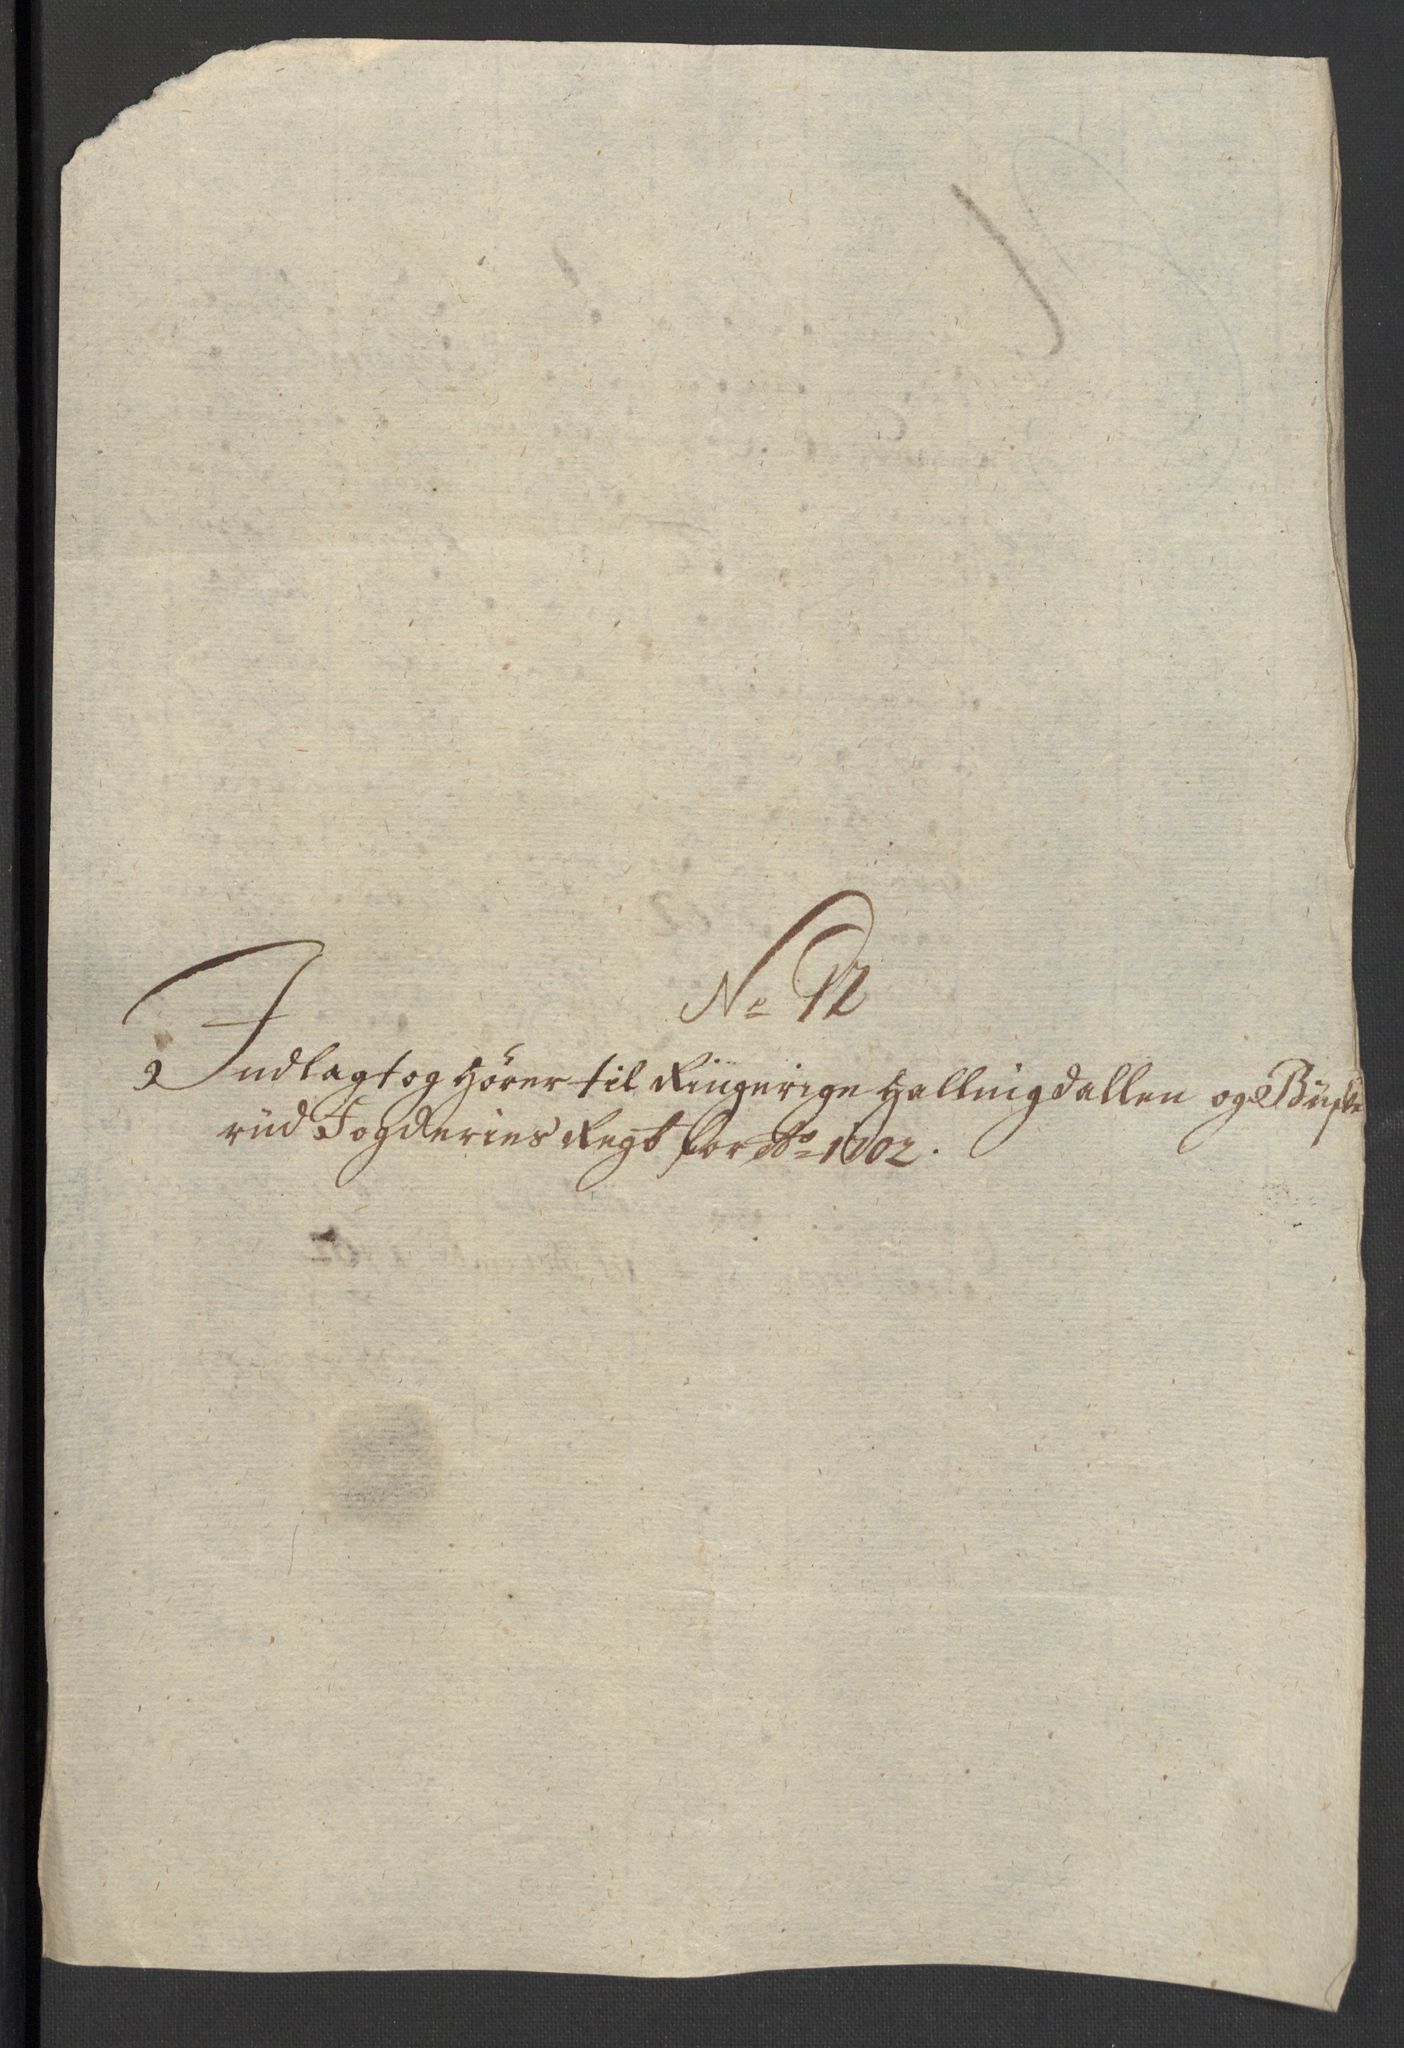 No 12
Indlagt og hører til Ringerige Hallingdallen og Buske
rud Fogderies Regt for Ao 1702.